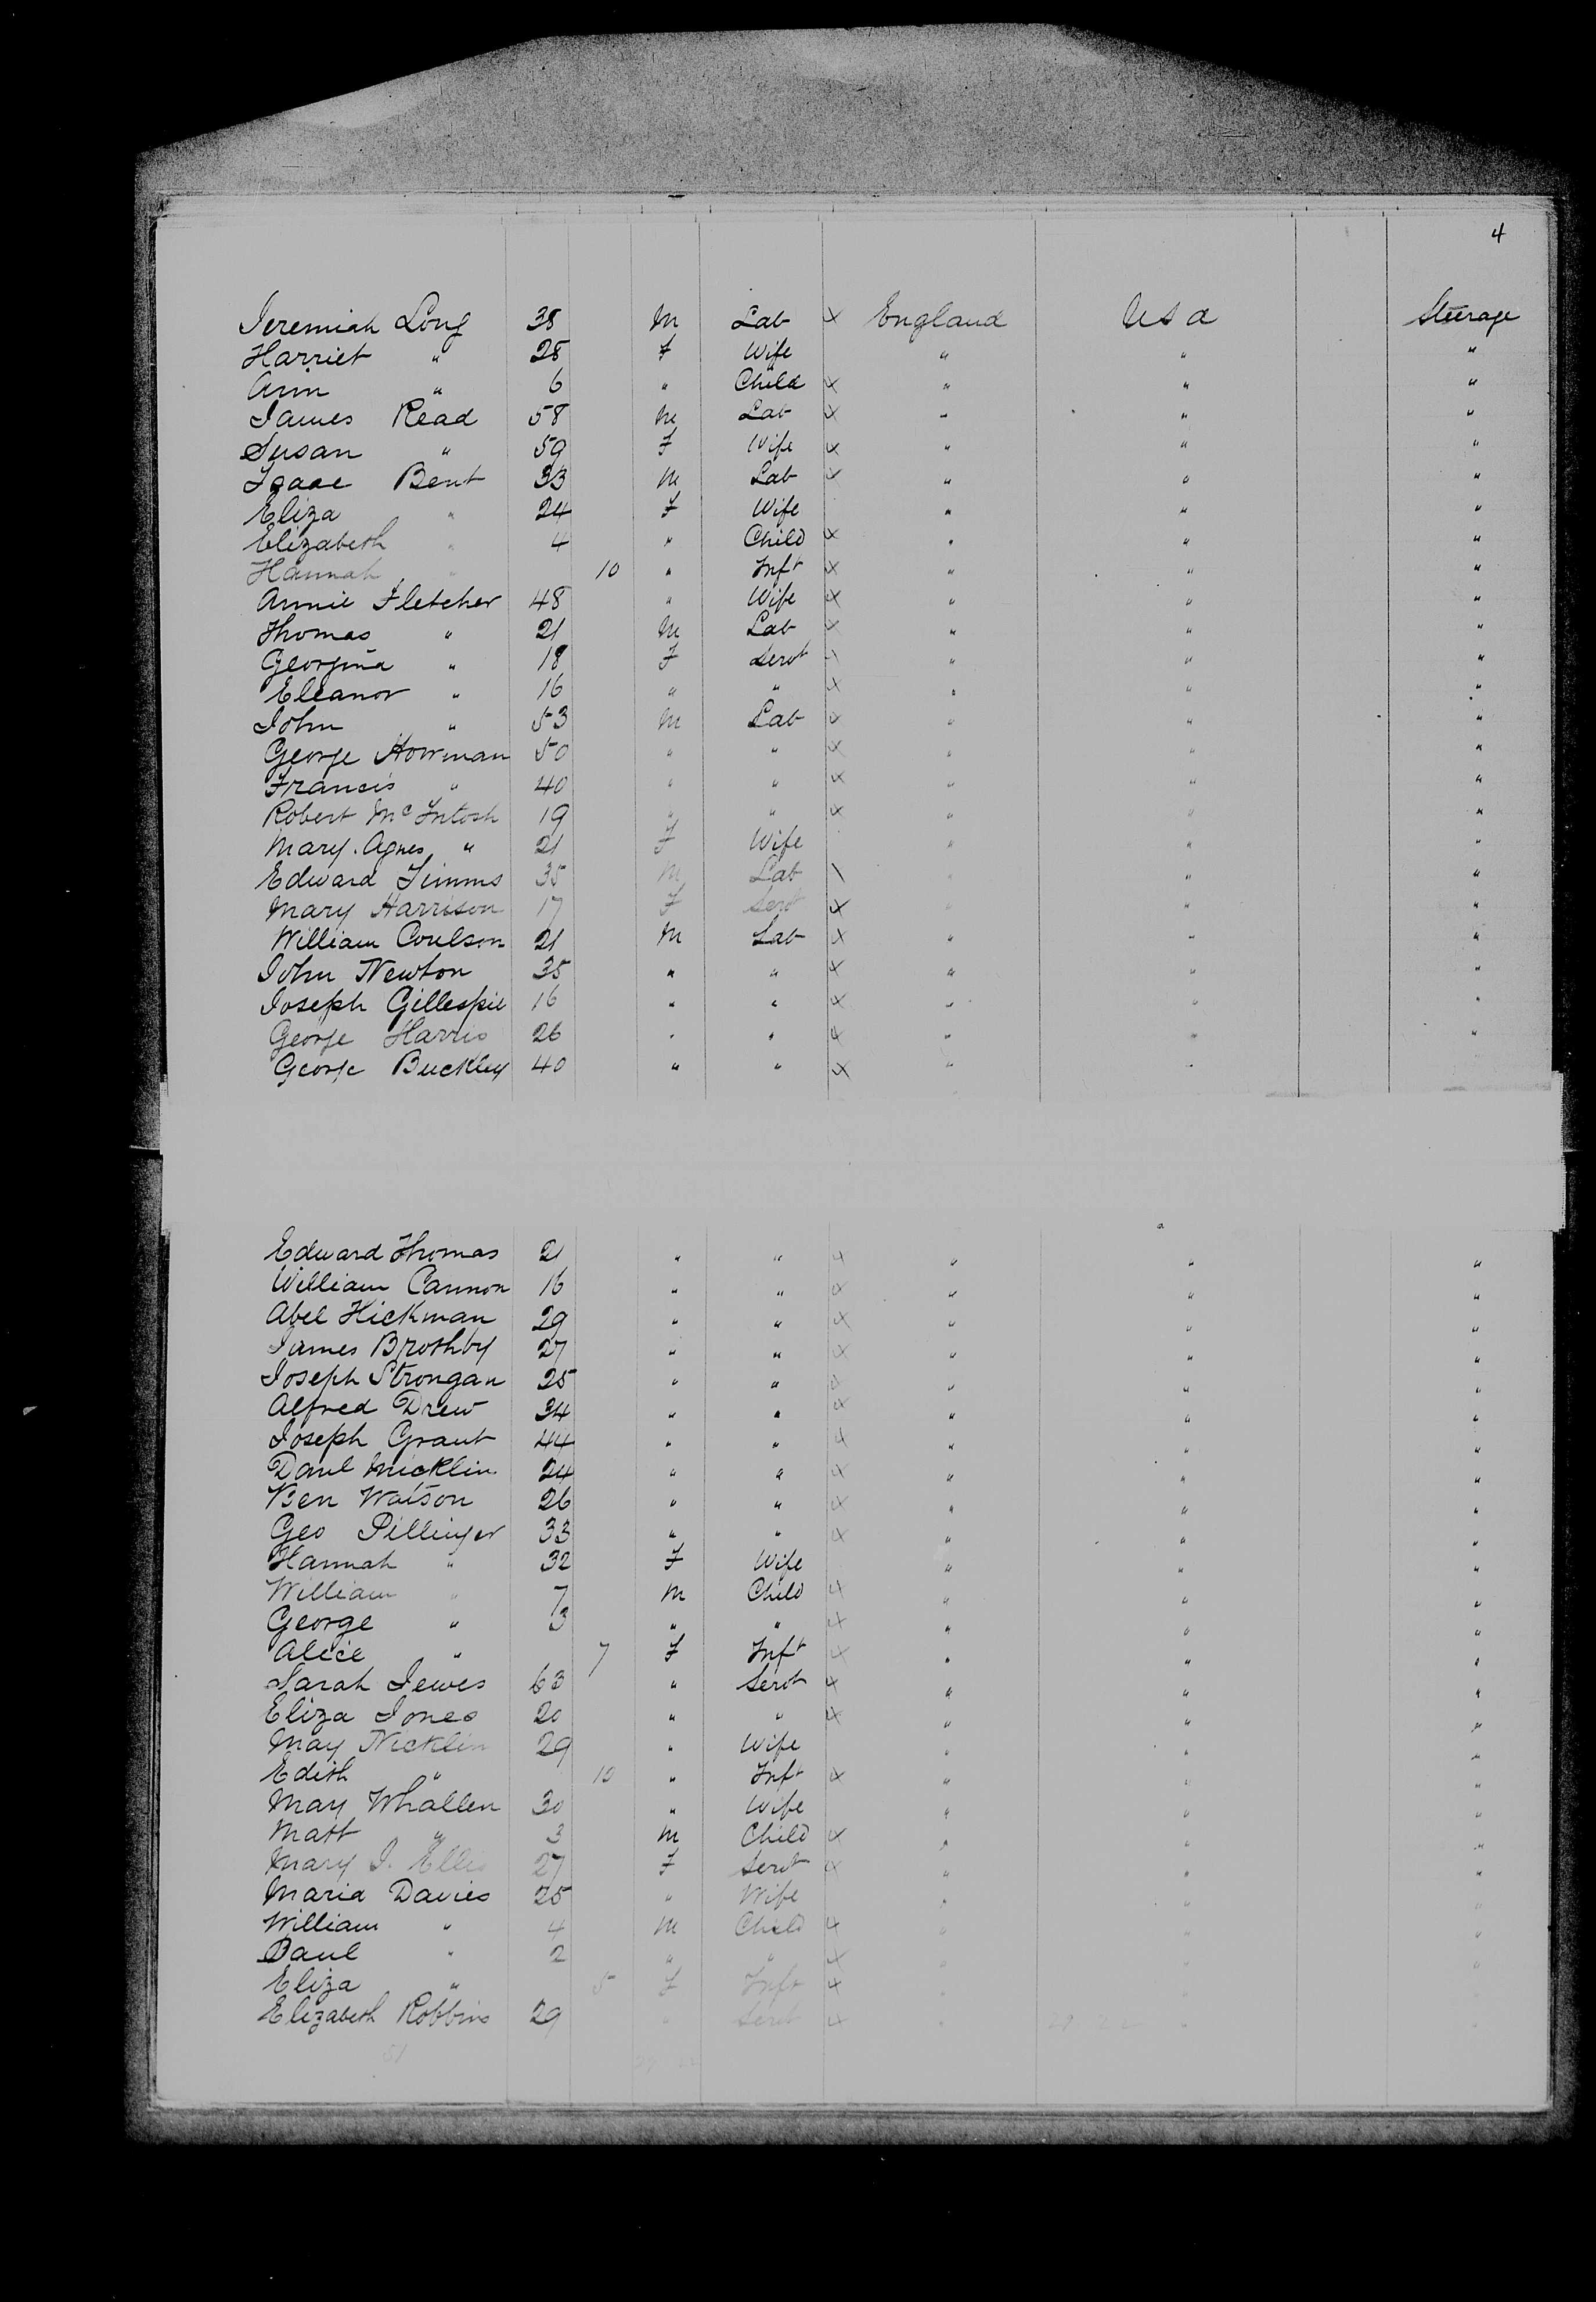 4
Jeremiah Long 38 M Lab x England USA Steerage
Harriet " 28 F Wife " " "
Ann " 6 " Child x " " "
James Read 58 M Lab x " " "
Susan " 59 F Wife x " " "
Isaac Bent 33 M Lab x " " "
Eliza " 24 F Wife " " "
Elizabeth " 4 " Child x " " "
Hannah " 10 " Inft x " " "
Annie Fletcher 48 " Wife x " " "
Thomas " 21 M Lab x " " "
Georgina " 18 F Servt \ " " "
Eleanor " 16 " " x " " "
John " 53 M Lab x " " "
George Howman 50 " " x " " "
Francis " 40 " " x " " "
Robert McIntosh 19 " " x " " "
Mary Agnes " 21 F Wife " " "
Edward Timms 35 M Lab \ " " "
Mary Harrison 17 F Servt x " " "
William Coulson 21 M Lab x " " "
John Newton 35 " " x " " "
Joseph Gillespie 16 " " x " " "
George Harris 26 " " x " " "
George Buckley 40 " " x " " "
Edward Thomas 21 " " x " " "
William Cannon 16 " " x " " "
Abel Hickman 29 " " x " " "
James Brothby 27 " " x " " "
Joseph Strongan 25 " " x " " "
Alfred Drew 34 " " x " " "
Joseph Grant 44 " " x " " "
Danl Micklin 24 " " x " " "
Ben Watson 26 " " x " " "
Geo Pillinger 33 " " x " " "
Hannah " 32 F Wife " " "
William " 7 M Child x " " "
George " 3 " " x " " "
Alice " 7 F Inft x " " "
Sarah Jewes 63 " Servt x " " "
Eliza Jones 20 " " x " " "
May Nicklin 29 " Wife " " "
Edith " 10 " Inft x " " "
May Whallen 30 " Wife " " "
Matt " 3 M Child x " " "
Mary J. Ellis 27 F Servt x " " "
Maria Davies 25 " Wife " " "
William " 4 M Child x " " "
Paul " 2 " " x " " "
Eliza " 5 F Inft x " " "
Elizabeth Robbins 29 " Servt x " "
51